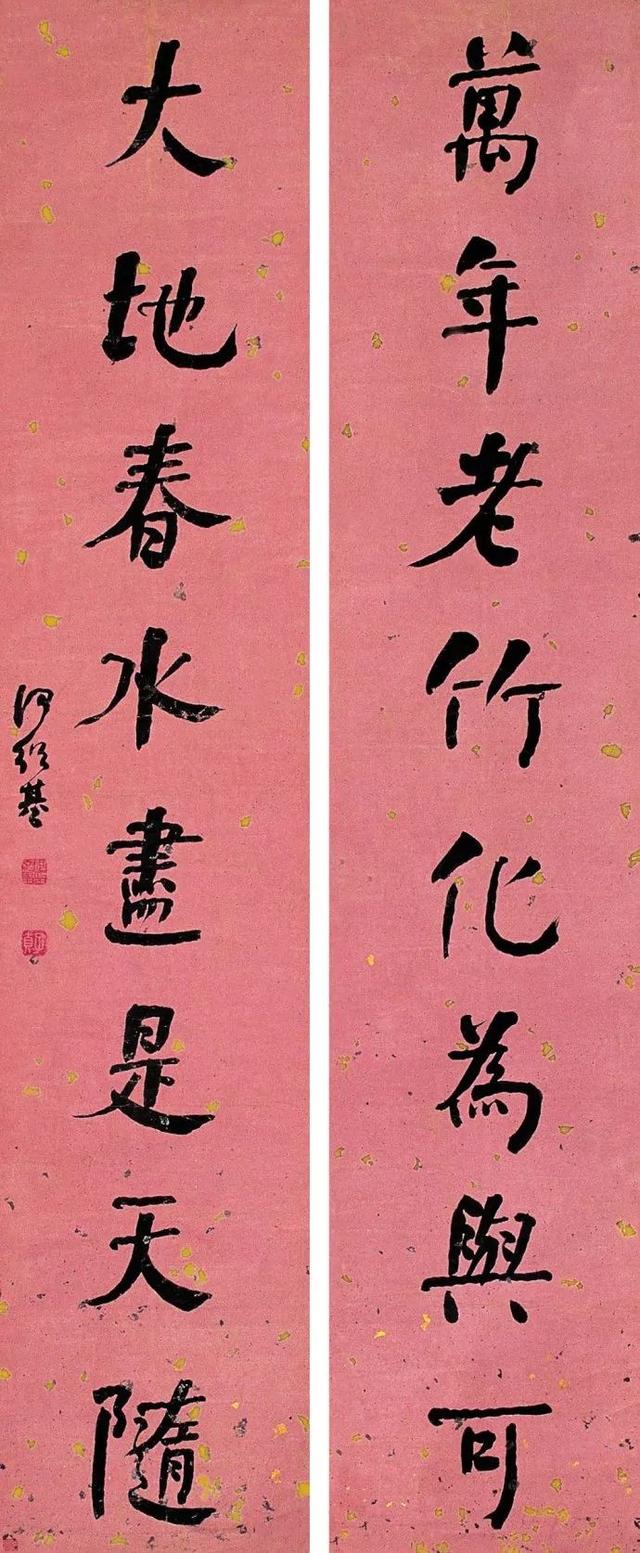 萬年老竹化為與可
大地春水盡是天隨
何紹基